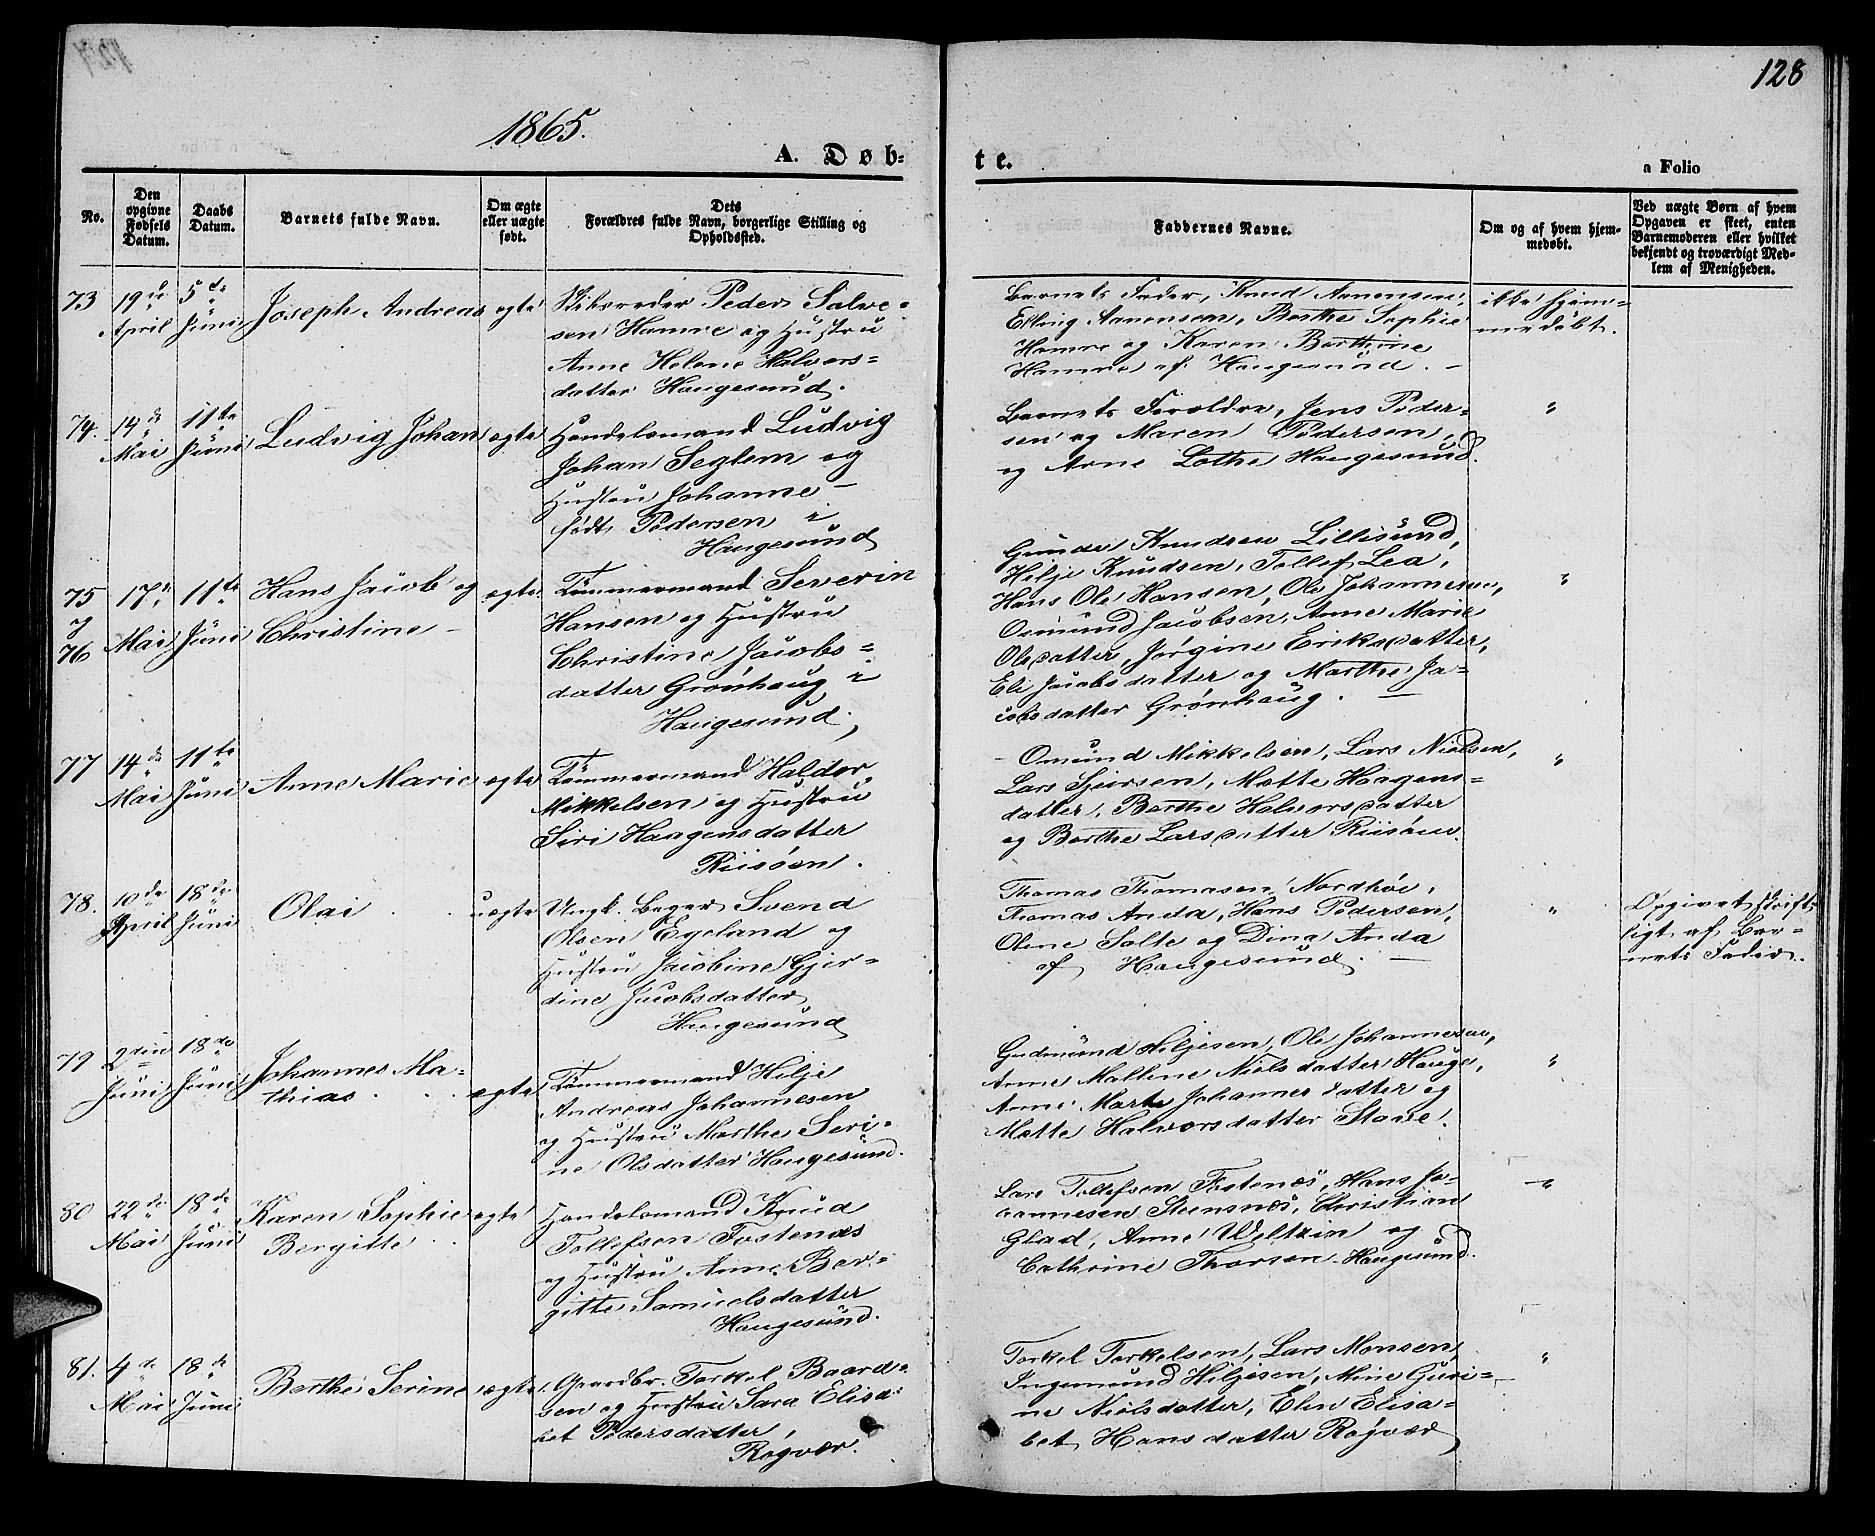 128
1865.
A. Døb-
te.
a Folio
No.
Den opgivne Fødsels Datum.
Daabs Datum.
Barnets fulde Navn.
Om ægte eller uægte født.
Dets
Forældres fulde Navn, borgerlige Stilling og
Opholdssted.
Faddernes Navne.
Om og af hvem hjem-
medøbt.
Ved uægte Børn af hvem
Opgaven er skeet, enten
Barnemoderen eller hvilket
bekjendt og troværdigt Med-
lem af Menigheden.
73
19de April
5te Juni
Joseph Andreas
egte
Skibsreder Peder Salve-
sen Hamre og Hustru
Anne Helene Halvors-
datter Haugesund.
Barnets Fader, Knud Aanensen,
Elling Aanensen, Berthe Sophie
Hamre og Karen Berthine
Hamre af Haugesund. –
ikke hjem-
medøbt.
74.
14de Mai
11te Juni
Ludvig Johan
egte
Handelsmand Ludvig
Johan Seglem og
Hustru Johanne –
født Pedersen i
Haugesund
Barnets Forældre, Jens Peder-
sen og Maren Pedersen,
og Arne Lothe Haugesund.
"
75
og
76
17de Mai
11te Juni
Hans Jacob og
Christine –
egte
Tømmermand Severin
Hansen og Hustru
Christine Jacobs-
datter Grønhaug i
Haugesund.
Gunder Knudsen Lillesund,
Hilje Knudsen, Tollef Lea,
Hans Ole Hansen, Ole Johannesen,
Osmund Jacobsen, Anne Marie
Olsdatter, Jørgine Eriksdatter,
Eli Jacobsdatter og Marthe Ja-
cobsdatter Grønhaug. –
"
77
14de Mai
11te Juni
Anne Marie
egte
Tømmermand Haldor
Mikkelsen og Hustru
Siri Haagensdatter
Riisøen.
– Omund Mikkelsen, Lars Nielsen,
Lars Sjursen, Mette Haagens-
datter, Berthe Halvorsdatter
og Berthe Larsdatter Riisøen.
"
78.
10de April
18de Juni
Olai
uægte
Ungk. Bager Svend
Olsen Egeland og
Hustru Jacobine Gjer-
dine Jacobsdatter
Haugesund
Thomas Thomasen Nordhøe,
Thomas Anda, Hans Pedersen,
Olene Salte og Dina Anda
af Haugesund. –
"
Opgivet skrift-
ligt af Bar-
nets Fader.
79
2den Juni
18de Juni
Johannes Ma-
thias
egte
Tømmermand Hilje
Andreas Johannesen
og Hustru Marthe Seri-
ne Olsdatter Haugesund.
Gudmund Hiljesen, Ole Johannesen,
Anne Malline Nielsdatter Hauge,
Anne Marte Johannesdatter og
Mette Halvorsdatter Stave.
"
80
22de Mai
18de Juni
Karen Sophie
Bergitte
egte
Handelsmand Knud
Tollefsen Fostenæs
og Hustru Anne Ber-
gitte Samuelsdatter
Haugesund.
Lars Tollefsen Fostenæs, Hans Jo-
hannesen Steensnæs, Christian
Glad, Anne Weltzin og
Cathrine Thorsen Haugesund.
– "
81.
4de Mai
18de Juni
Berthe Serine
egte
Gaardbr. Torkel Baard-
sen og Hustru Sara Elisa-
bet Pedersdatter,
Røgvær.
Torkel Torkelsen, Lars Monsen
Ingemund Hiljesen, Mine Guri-
ne Nielsdatter, Elen Elisa-
bet Hansdatter Røgvær
"